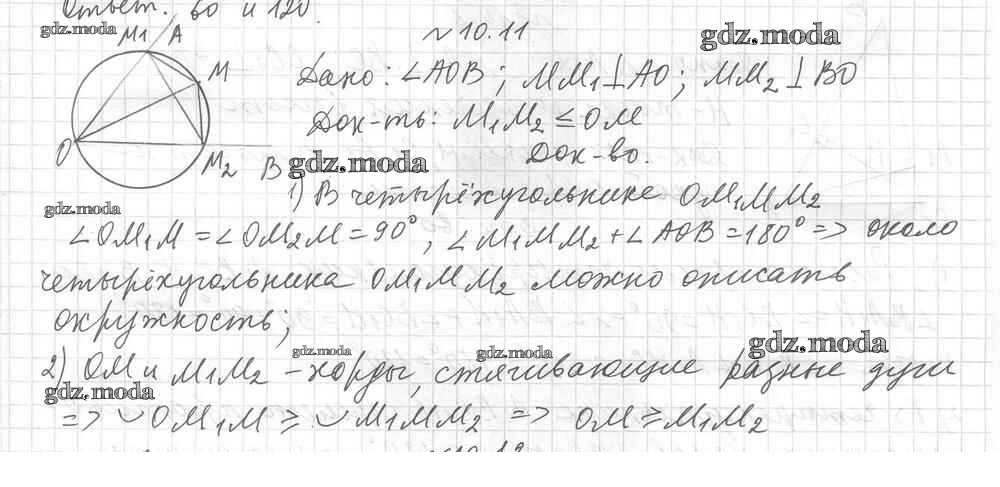 Ответ. 60 и 120.
gdz.moda
M1 A
№10.11
gdz.moda
M
Дано: ∠AOB; MM₁⊥AO; MM₂⊥BO
Док-ть: M₁M₂ ≤ OM
O
M2 B
gdz.moda
Док-во.
1) В четырёхугольнике OM₁MM₂
gdz.moda
∠OM₁M = ∠OM₂M = 90°, ∠M₁MM₂ + ∠AOB = 180° => около
четырёхугольника OM₁MM₂ можно описать
окружность;
gdz.moda
gdz.moda
gdz.moda
2) OM и M₁M₂ - хорды, стягивающие разные дуги
gdz.moda
=> ◡OM₁M ≥ ◡M₁MM₂ => OM ≥ M₁M₂